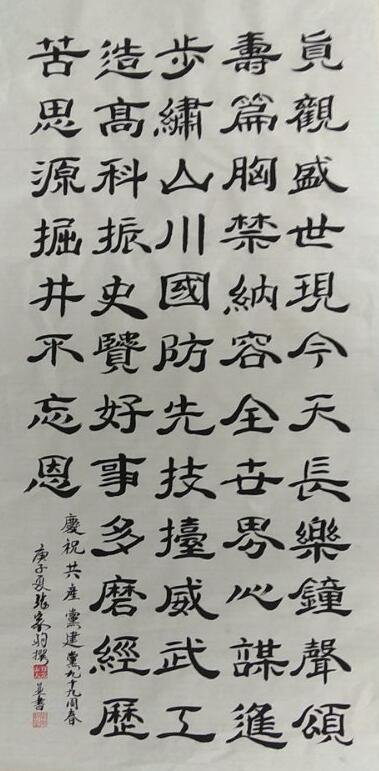 貞觀盛世現今天長樂鐘聲頌
壽篇胸禁納容全世界心謀進
步繡山川國防先技擡威武工
造高科振史贒好事多磨經歷
苦思源掘井不忘恩
慶祝共産黨建黨九十九周春
庚子夏張家撰並書